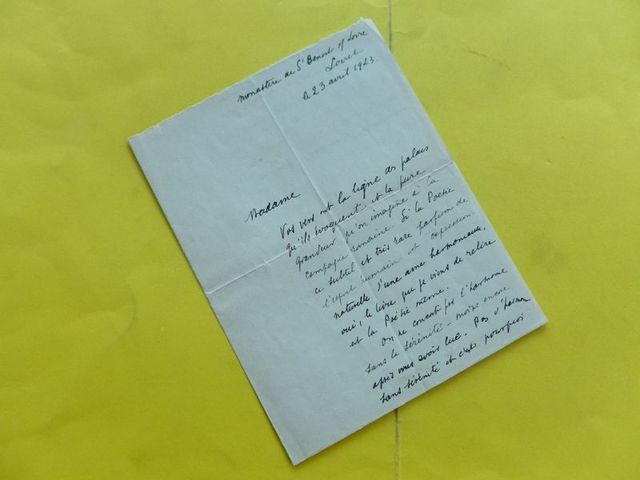 monastère de St Benoit s/ Loire
Loiret
le 23 avril 1923
Madame
Vos vers ont la ligne des palais
qu'ils évoquent et la pure
grandeur qu'on imagine à la
campagne romaine. Si la Poésie
ce subtil et très rare parfum de
l'esprit humain est expression
naturelle d'une ame harmonieuse,
oui, le livre que je viens de relire
est la Poésie même.
On ne connait pas l'harmonie
sans la sérénité - moins encore
après vous avoir lue. Pas d'harmo
sans sérénité et c'est pourquoi